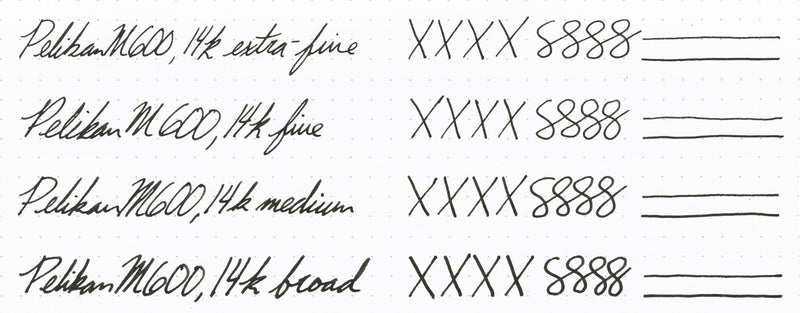 Pelikan M600, 14k extra-fine XXXX 8888
Pelikan M600, 14k fine XXXX 8888
Pelikan M600, 14k medium XXXX 8888
Pelikan M600, 14k broad XXXX 8888